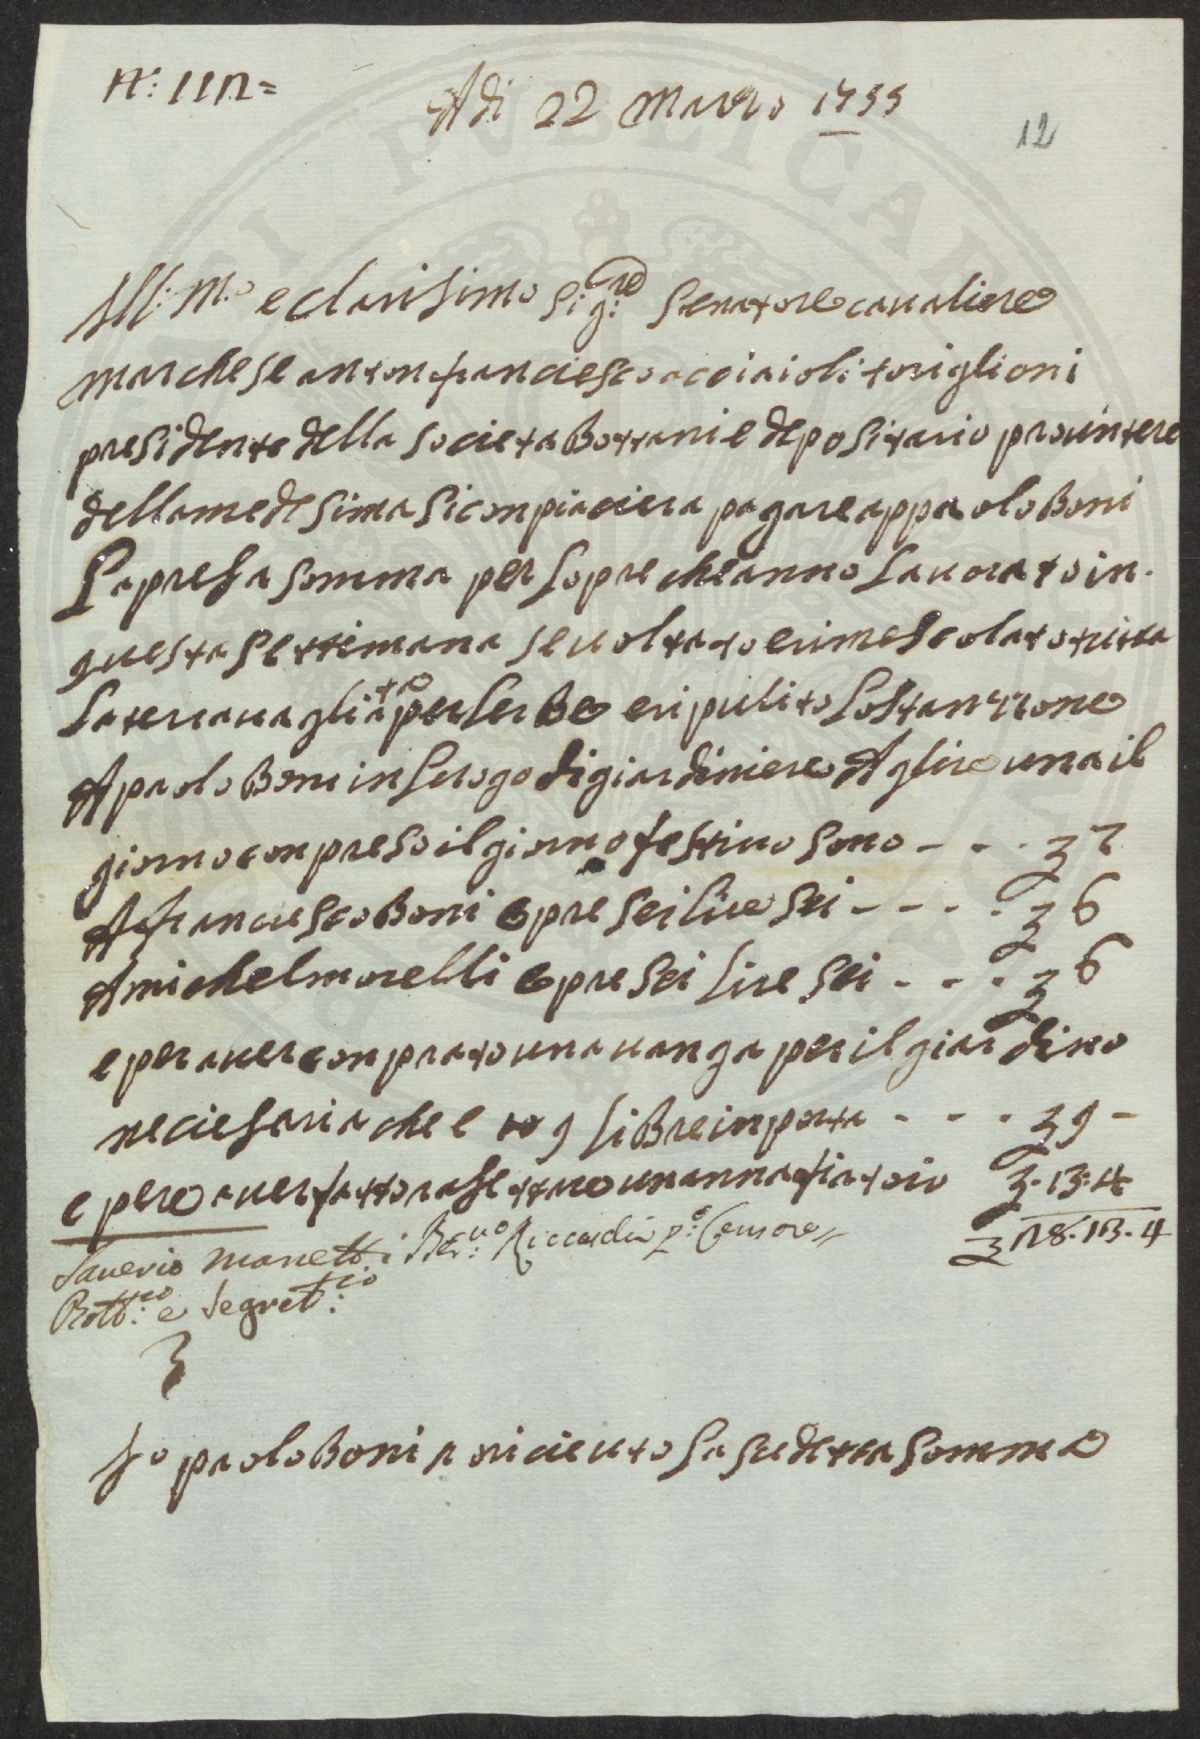 N.: 112=
Adi 22 Marzo 1755
12
Ill: m.o e clarisimo Sig:re Senatore cavaliere
marchese antonfranciesco acciaioli toriglioni
presidente della societa Bottani e depositario prouintere
dellamedesima si conpiaciera pagare appaolo Boni
La presa somma per Lopre che anno Lavorato in
questa settimana se uoltato e rimescolato tutta
La terra uagliata per Lerbe e ripulito Lostanzone
A paolo Boni in Luogo di giardiniere A Lire una il
giorno conpreso il giorno festiuo sono - - - 7
A franciesco Boni opre sei lire sei - - - - 6
A michel morelli opre sei Lire sei - - - 6
e per auer conprato una uanga per il giardino
neciesaria che e 9 libre inporta - - - 9 -
e pere auer fattorasettare un annafiatoio -.13.4
28.13.4
Saverio Manetti Ber:no Riccardi p:o Censore
Bott:co e Segret:io
Io paolo Boni o riceuto La sudetta somma